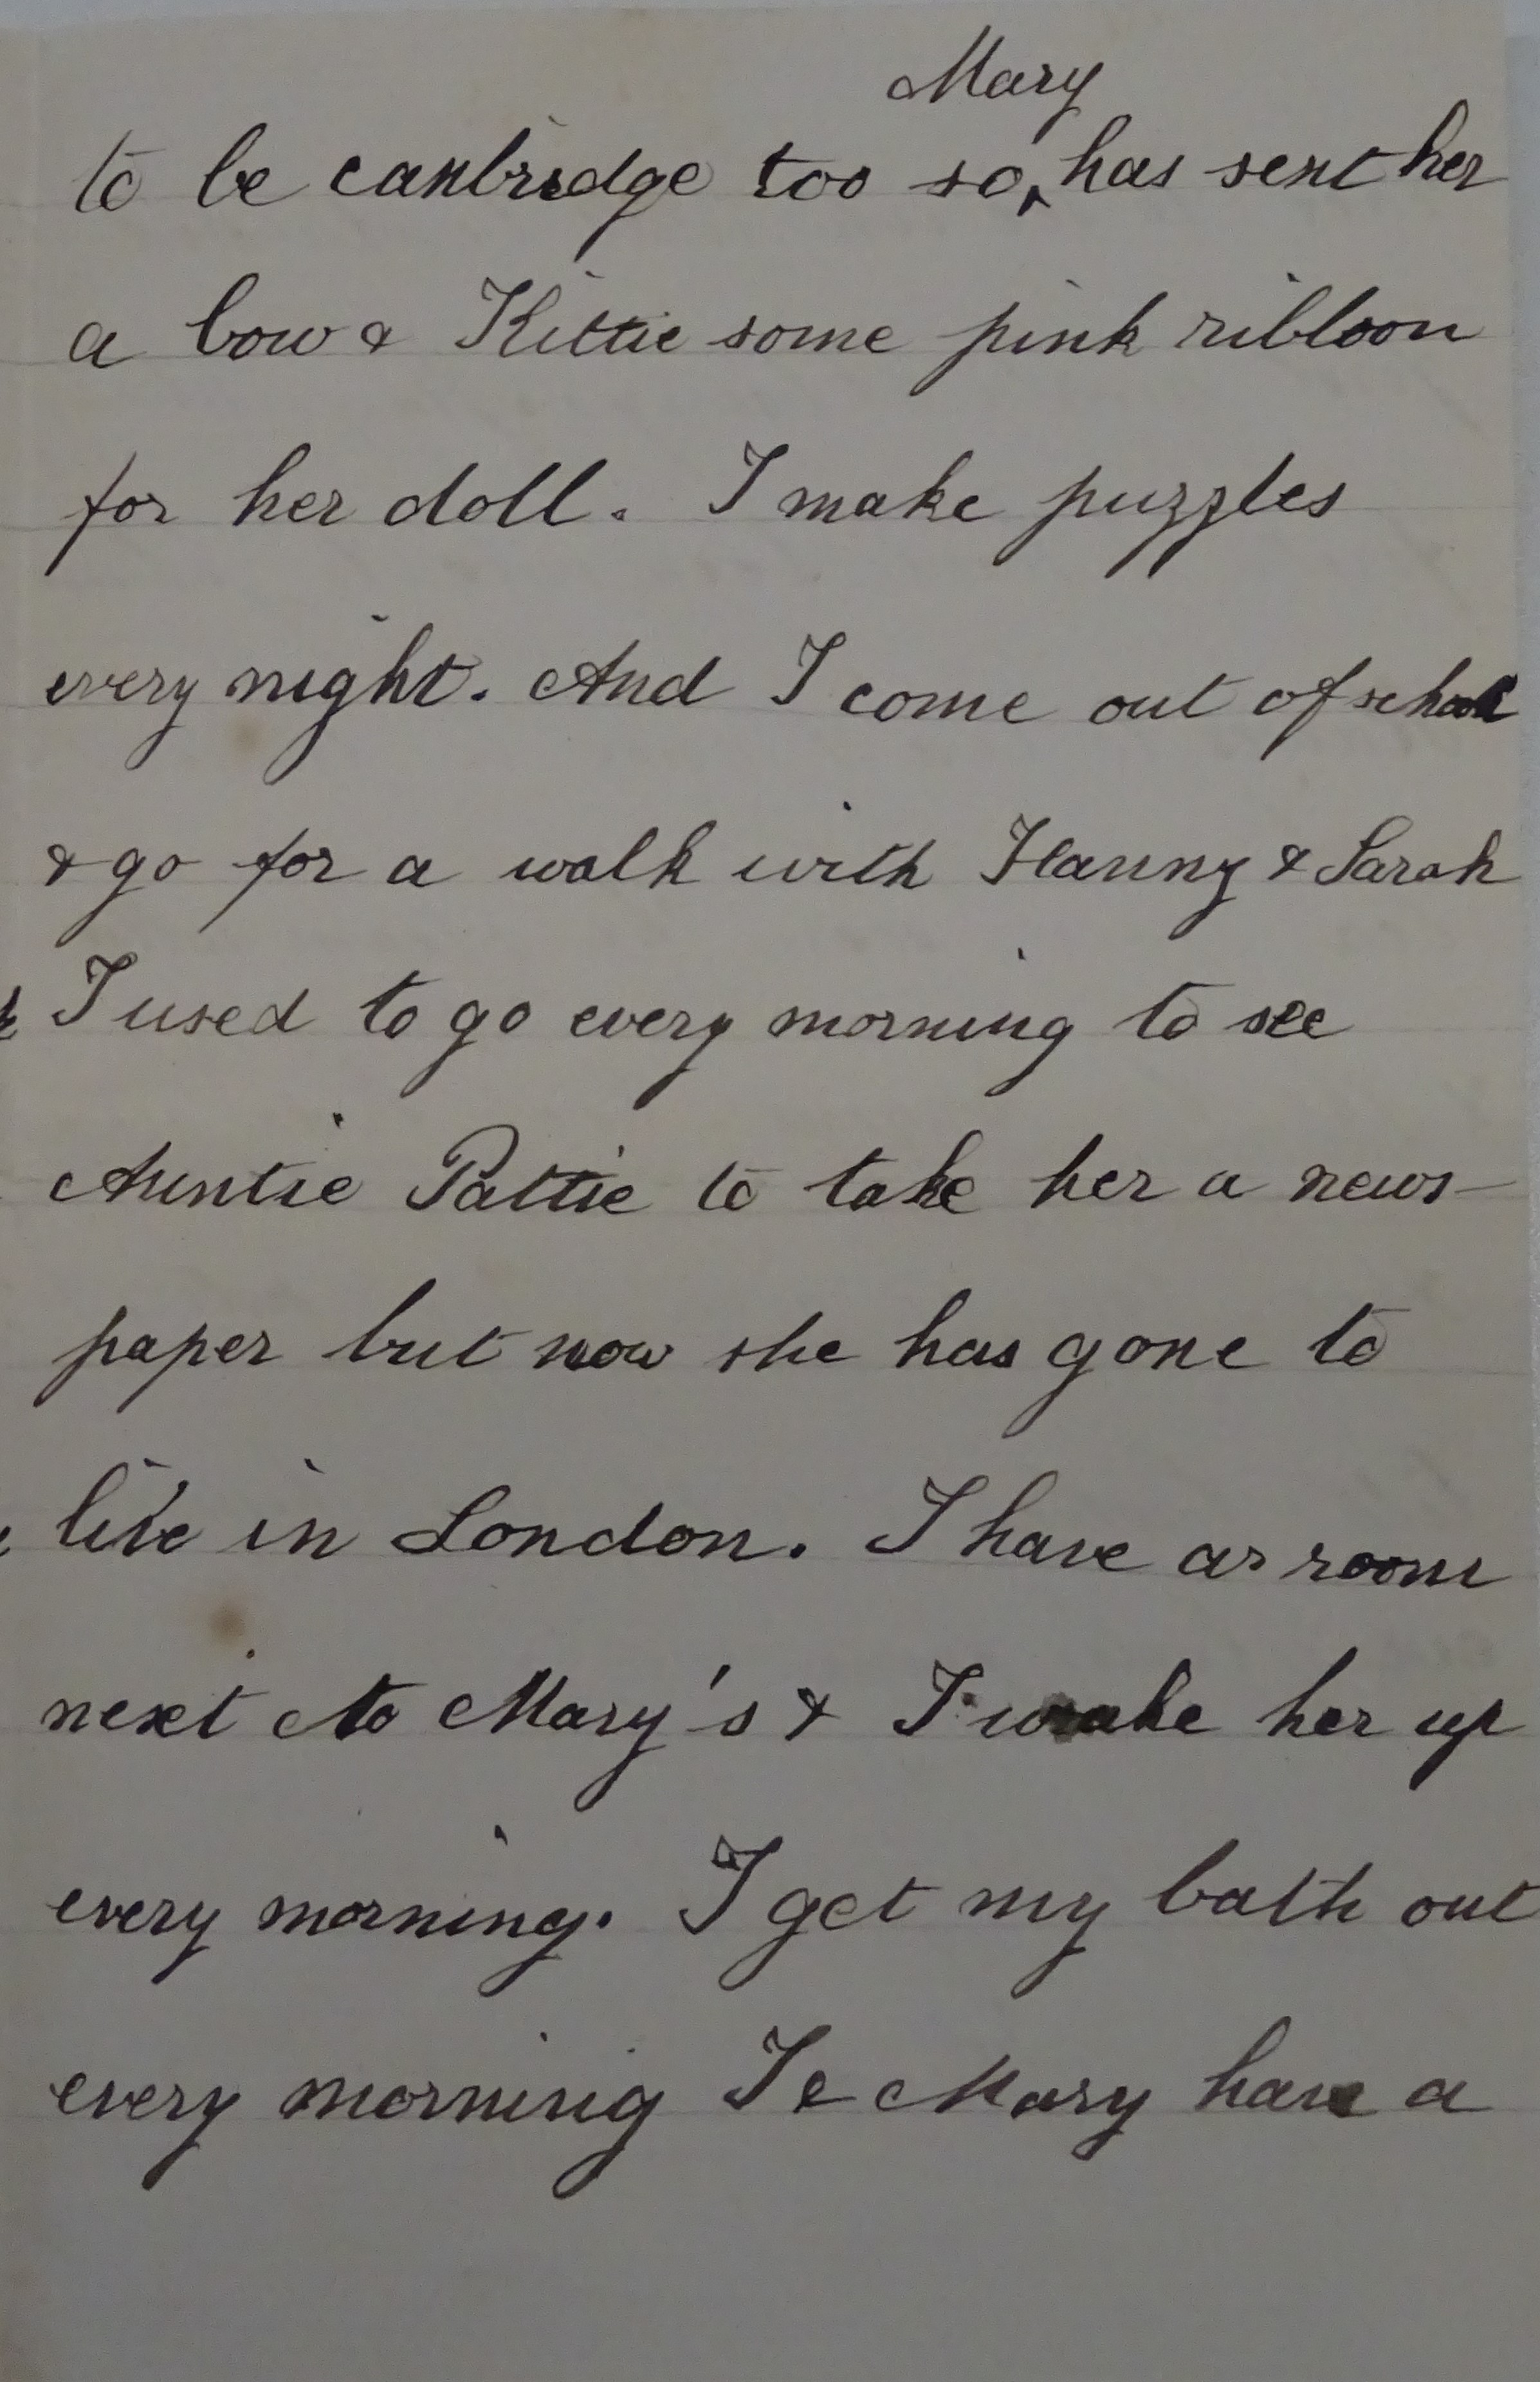 to be canbridge too so, Mary has sent her
a bow & Kittie some pink ribbon
for her doll. I make puzzles
every night. And I come out of school
& go for a walk with Hanny & Sarah
I used to go every morning to see
Auntie Pattie to take her a news-
paper but now she has gone to
live in London. I have ar room
next to Mary's & I wake her up
every morning. I get my bath out
every morning I & Mary have a